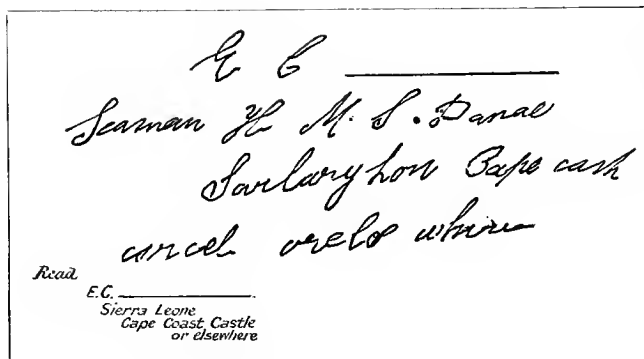 E C
Seaman H. M. S. Danae
Sarlaryhon Cape cash
carcel orels where
Read
E.C.
Sierra Leone
Cape Coast Castle
or elsewhere